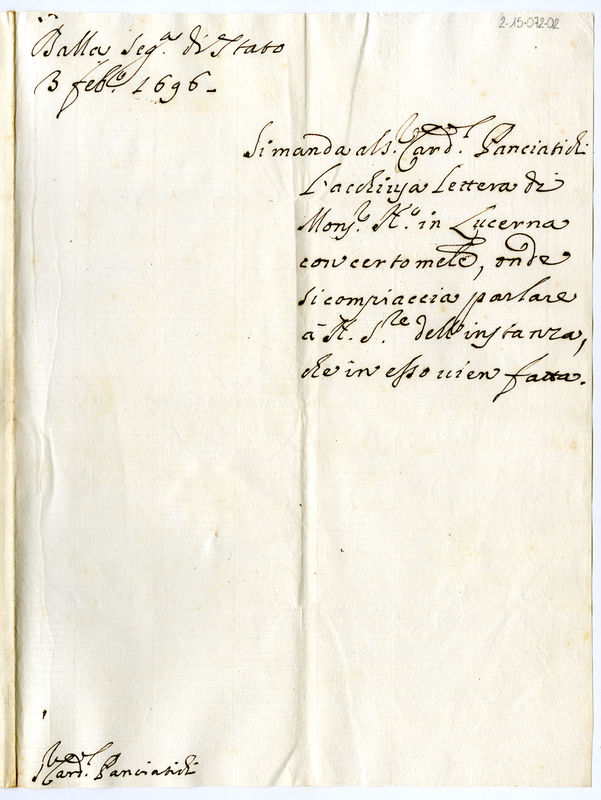 2-15-072-02
Dalla Seg.ᵃ di Stato
3 feb.º 1696-
Si manda al S. Card.ˡ Panciatichi
l'acchiusa lettera di
Mons.ʳ N.º in Lucerna
con certo mele, onde
si compiaccia parlare
à N. S.ʳᵉ dell'instanza,
che in esso vien fatta.
S.ʳ Card.ˡ Panciatichi